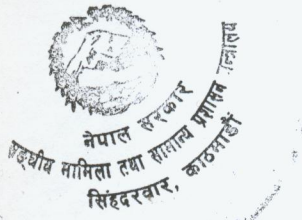 नेपाल सरकार
सङ्घीय मामिला तथा सामान्य प्रशासन मन्त्रालय
सिंहदरवार, काठमाडौं